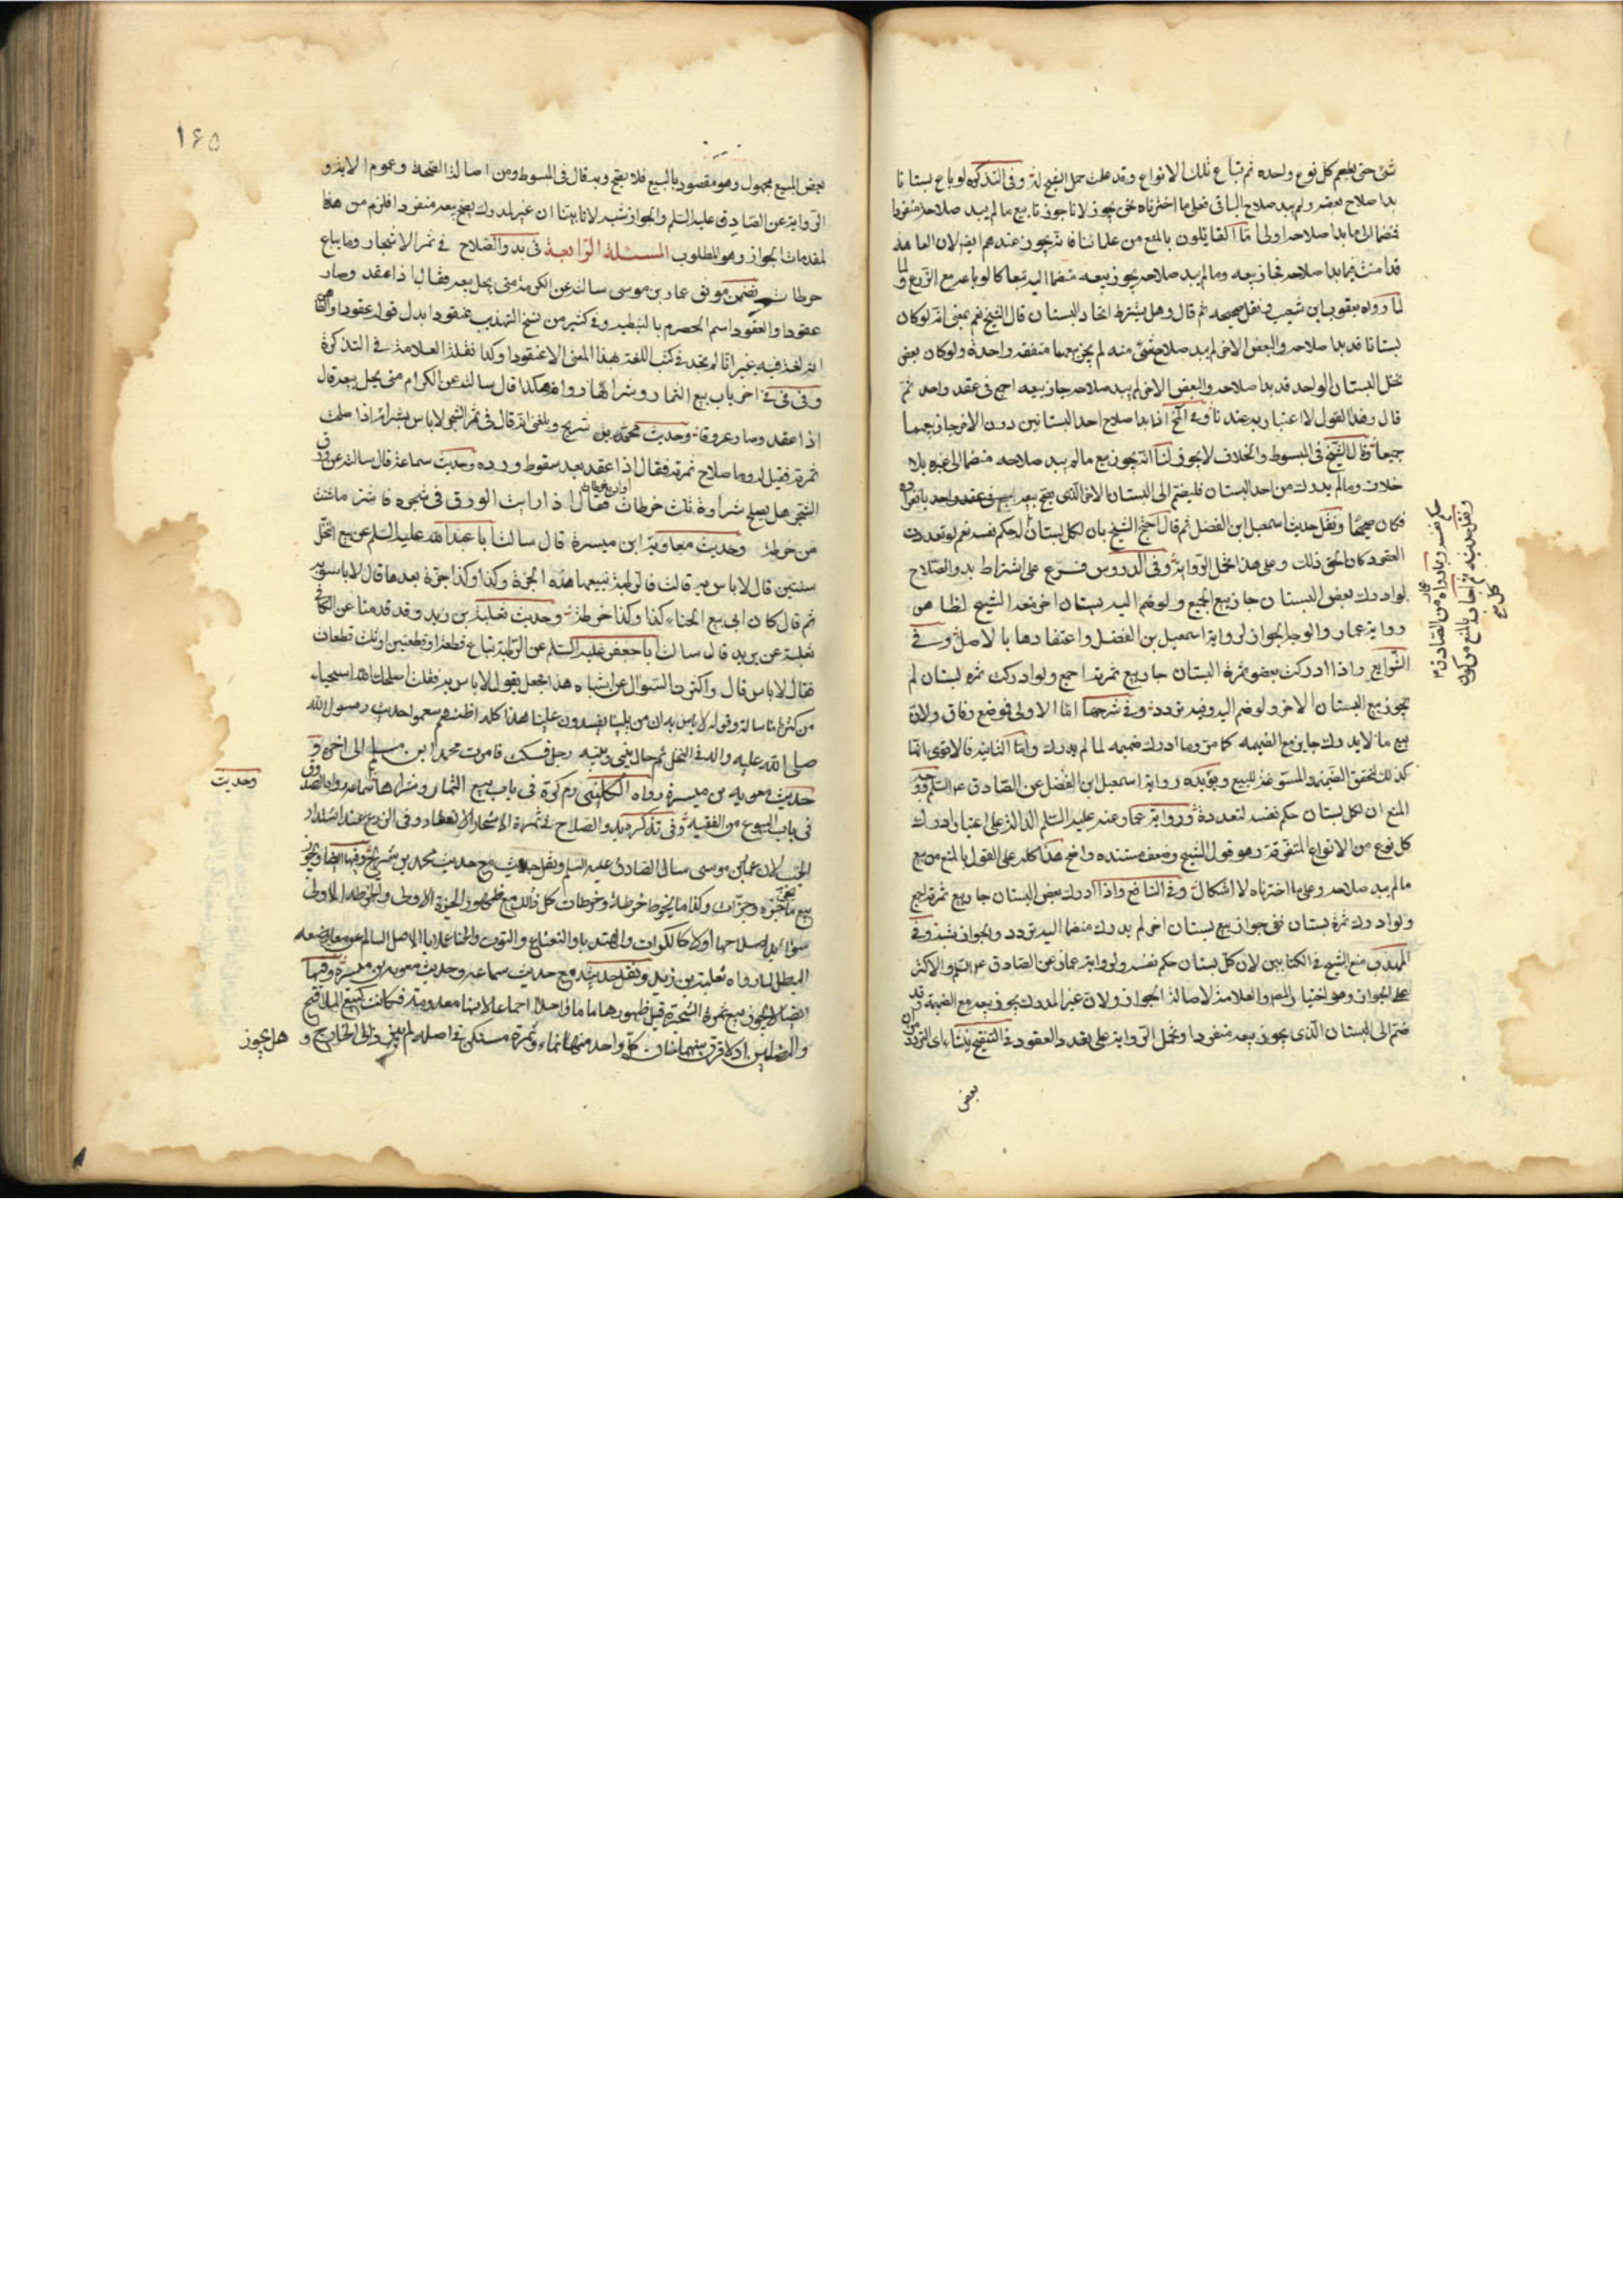 شئ حتى يطعم كل نوع وحده ثم تباع تلك الانواع وقد علمت حمل الشيخ له وفى التذكره لو باع بستانا
بدا صلاح بعضه ولم يبد صلاح الباقى فعلى ما اخترناه نحن يجوز لانا جوزنا بيع ما لم يبد صلاحه منفردا
فضما الى ما بدا صلاحه اولى امّا القايلون بالمنع من علمائنا فانه يجوز عندهم ايضا لان العاهة
قد امنت فيما بدا صلاحه فجاز بيعه وما لم يبد صلاحه يجوز بيعه منضما اليه تبعا كما لو باعه مع الزرع
لما رواه يعقوب ابن شعيب ونقل صحيحه ثم قال وهل يشترط اتحاد البستان قال الشيخ نعم بمعنى انه لو كان
بستانا قد بدا صلاحه والبعض الاخر لم يبد صلاح شئ منه لم يجز بيعهما صفقه واحدة ولو كان بعض
نخل البستان الواحد قد بدا صلاحه والبعض الاخر لم يبد صلاحه جاز بيعه اجمع فى عقد واحد ثم
قال وهذا القول لا اعتبار به عندنا وفى اذا بدا صلاح احد البستانين دون الاخر جاز بيعهما
جميعا وقال الشيخ فى المبسوط والخلاف لا يجوز لنا انه يجوز بيع ما لم يبد صلاحه منضما الى غيره بلا
خلاف وما لم يدرك من احد البستان فليضم الى البستان الاخر الذى يصح بيعه فى عقد واحد
فكان صحيحا ونقل حديث اسمعيل ابن الفضل ثم قال احتج الشيخ بان لكل بستان حكم نفسه نعم لو تعددت
العقود كان الحق ذلك وعلى هذا تحمل الرواية وفى الدروس فرع على اشتراط بدو الصلاح
لو ادرك بعض البستان جاز بيع الجميع ولو ضم اليه بستان اخر منعه الشيخ لظاهر
رواية عمار والوجه الجواز لرواية اسمعيل بن الفضل واعتضادها بالاصل وفى
الشرايع واذا ادركت بعض ثمرة البستان جاز بيع ثمرته اجمع ولو ادركت ثمره بستان لم
يجوز بيع البستان الاخر ولو ضم اليه وفيه تردد وفى شرحها امّا الاولى فموضع وفاق ولانّ
بيع ما لا يدرك جايز مع الضميمه كما مر وما ادرك ضميمه لما لم يدرك وامّا الثانية فالاقوى انها
كذلك لتحقق الضميمة المسوغة للبيع ويؤيده رواية اسمعيل ابن الفضل عن الصادق
المنع ان لكل بستان حكم نفسه لتعدده ورواية عمار عنه عليه السلم الدالة على اعتبار ادراك
كل نوع من الانواع المتفرقة وهو قول الشيخ وضعف مستنده واضح هذا كله على القول بالمنع من بيع
ما لم يبد صلاحه وعلى ما اخترناه لا اشكال وفى النافع واذا ادرك بعض البستان جاز بيع ثمرته اجمع
ولو ادرك ثمرة بستان ففى جواز بيع بستان اخر لم يدرك منضما اليه تردد والجواز اشبه وفى
المهذب منع الشيخ فى الكتابين لان كل بستان حكم نفسه ولرواية عمار عن الصادق والاكثر
على الجواز وهو اختيار المصر والعلامة لاصالة الجواز ولان غير المدرك يجوز بيعه مع الضميمة وقد
ضم الى البستان الذى يجوز بيعه منفردا وتحمل الرواية على تعدد العقود وفى التنقيح
بعض
ونقل حديثه ثم اجاب بالمنع من كون
كل
حكم نفسه وبما رواه عمار من الصادق
١٦٥
بعض المبيع مجهول وهو مقصود بالبيع فلا يصح وبه قال فى المبسوط ومن اصالة الصحة وعموم الاية و
الرواية عن الصادق عليه السلم والجواز اشبه لانا بينا ان غير المدرك يصح بيعه منفردا فلزم من هذا
المقدمات الجواز وهو المطلوب المسئلة الرابعة فى بدو الصلاح فى ثمر الاشجار وما يباع
خرطات يتضمن موثق عمار بن موسى سالته عن الكرم متى يحل بيعه فقال اذا عقد وصار
عقودا والعقود اسم الحصرم بالنبطيه وفى كثير من نسخ التهذيب عنقودا بدل قوله عقودا
انه لغة فيه غير انّا لم نجد فى كتب اللغة هذا المعنى الا عنقودا وكذا نقله العلامة فى التذكرة
وفى فى فى اخر باب بيع الثمار وشرائها رواه هكذا قال سالته عن الكرم متى يحل بيعه قال
اذا عقد وصار عروقا وحديث محمد بن شريح وبلغنى انه قال فى ثمر الشجر لا باس بشرائه اذا صلحت
ثمرته فقيل له وما صلاح ثمرته فقال اذا عقد بعد سقوط ورده وحديث سماعة قال سالته عن ورق
الشجر هل يصلح شراؤه ثلث خرطات فقال اذا رايت الورق فى شجره فاشتر ما شئت
من خرطة وحديث معاوية ابن ميسرة قال سالت ابا عبد الله عليه السلم عن بيع النخل
سنتين قال لا باس به قالت فالرطبة نبيعها هذه الجزة وكذا وكذا جزة بعدها قال لا باس به
ثم قال كان ابى يبيع الحناء كذا وكذا خرطة وحديث ثعلبة بن زيد وقد قدمنا عن الكافى
ثعلبة عن بريد قال سالت ابا جعفر عليه السلم عن الرطبة تباع قطعة او قطعتين او ثلث قطعات
فقال لا باس قال واكثرت السؤال عن اشباه هذا فجعل يقول لا باس به فقلت اصلحك الله استحياء
من كثرة ما سالته وقوله لا باس به ان من يلينا يفسدون علينا هذا كله اظنهم سمعوا حديث رسول الله
صلى الله عليه واله فى النخل ثم حال بينى وبينه رجل فسكت فامرت محمد ابن مسلم الى اخره و
حديث معويه بن ميسرة رواه الكلينى فى باب بيع الثمار وشرائها
وحديث
فى باب البيوع من الفقيه وفى تذكره بدو الصلاح فى ثمرة الاشجار الانعقاد وفى الزرع عند اشتداد
الحب لان عمار بن موسى سال الصادق عليه السلم ونقل حديث مع حديث محمد بن شريح وفيها ايضا ويجوز
بيع ما يجز جزه وجزات وكذا ما يخرط خرطة وخرطات كل ذلك مع ظهور الجزة الاولى والخرطه الاولى
سواء بدا صلاحها اولا كالكراث والهندبا والنعناع والتوت والحنا عملا بالاصل السالم عن معارضه
المبطل لما رواه ثعلبة بن زيد ونقل حديثه مع حديث سماعه وحديث معويه بن ميسرة وفيها
ايضا لا يجوز بيع ثمرة الشجرة قبل ظهورها عاما واحدا اجماعا لانها معدومة فكانت كبيع الملاقيح
والمضامين اذ لا فرق بينهما فان كل واحد منهما نماء وثمرة مستكن فى اصله لم يبرز الى الخارج و هل يجوز